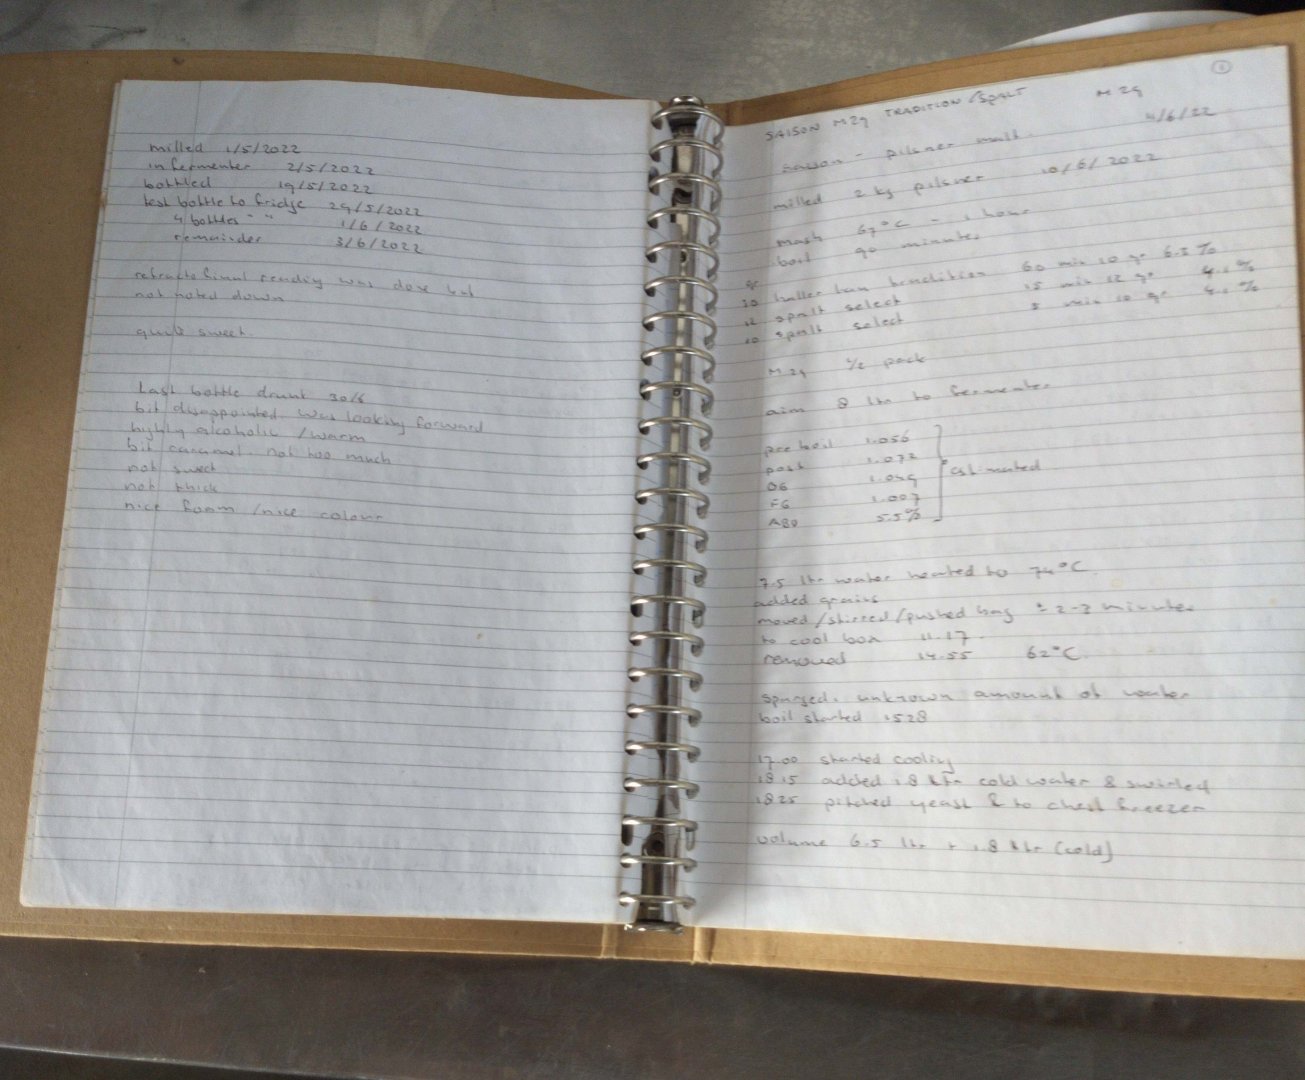 milled 1/5/2022
in fermenter 2/5/2022
bottled 19/5/2022
test bottle to fridge 29/5/2022
4 bottles " " 1/6/2022
remainder 3/6/2022
final reading was done but
not noted down
quite sweet.
Last bottle drunk 30/6
bit disappointed. was looking forward
highly alcoholic / warm
bit caramel. not too much
not sweet
not thick
nice foam / nice colour
1
SAISON M29 TRADITION / SPALT M29
saison - pilsner malt. 4/6/22
milled 2 kg pilsner 10/6/2022
mash 67°C - 1 hour
boil 90 minutes
gr
10 hallertau tradition 60 min 10 gr 6.3%
12 spalt select 15 min 12 gr 4.1%
10 spalt select 5 min 10 gr 4.1%
M29 1/2 pack
aim 8 ltr to fermenter
pre boil 1.056
post 1.072
OG 1.049
FG 1.007
ABV 5.5%
estimated
7.5 ltr water heated to 74°C
added grains
moved/stirred/pushed bag ± 2-3 minutes
to cool box 11.17
removed 14.55 62°C
sparged. unknown amount of water
boil started 1528
17.00 started cooling
1815 added 1.8 ltr cold water & swirled
1825 pitched yeast & to chest freezer
volume 6.5 ltr + 1.8 ltr (cold)